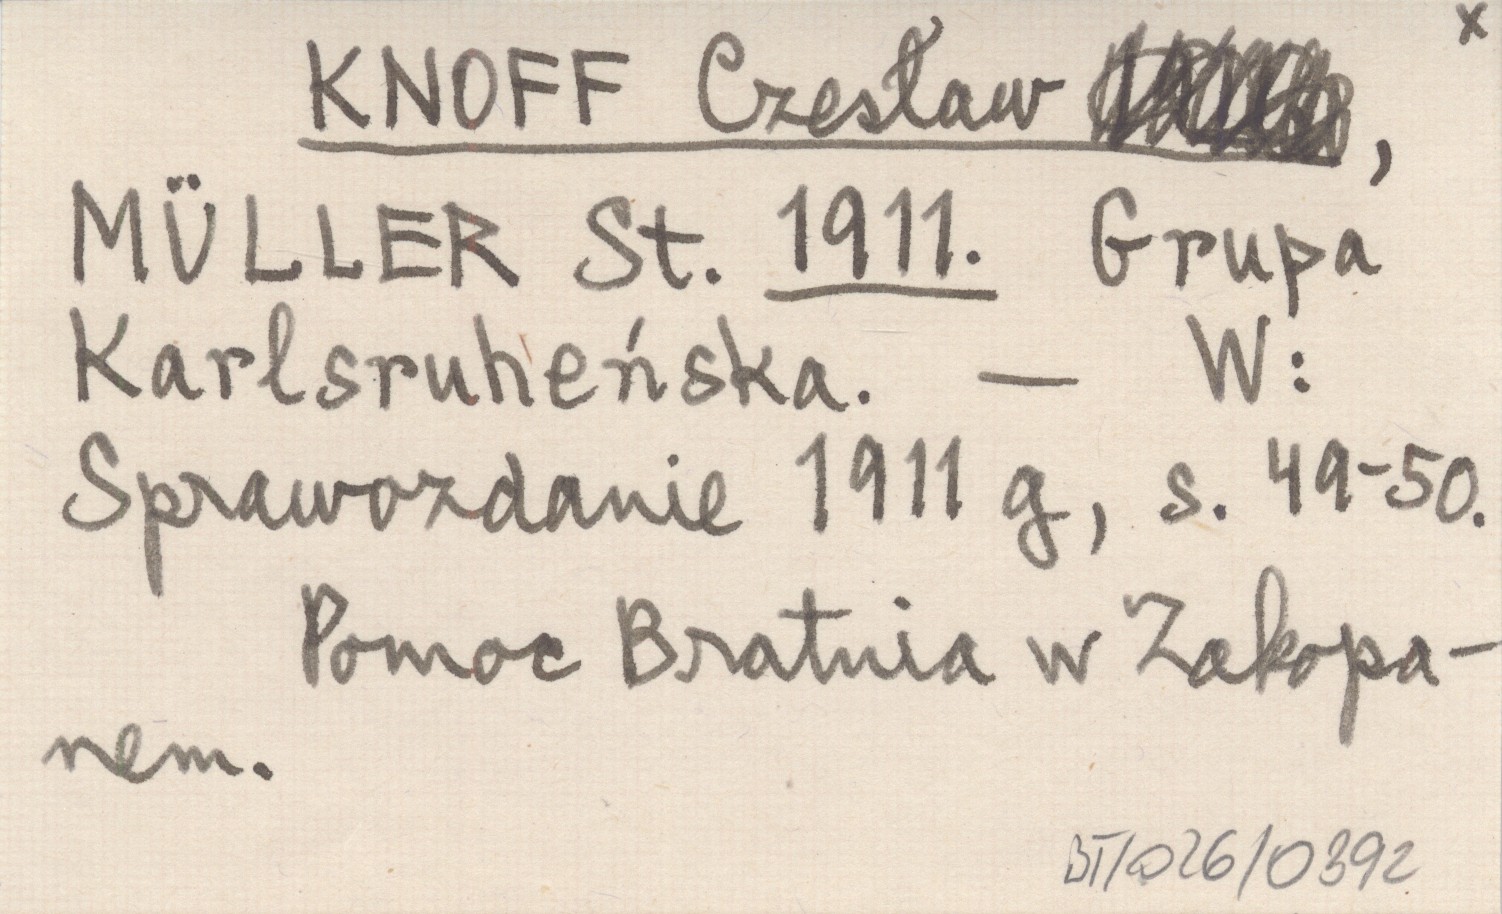 x
KNOFF Czesław ,
MÜLLER St. 1911. Grupa
Karlsruheńska. — W:
Sprawozdanie 1911 g, s. 49-50.
Pomoc Bratnia w Zakopa-
nem.
BT/026/0392